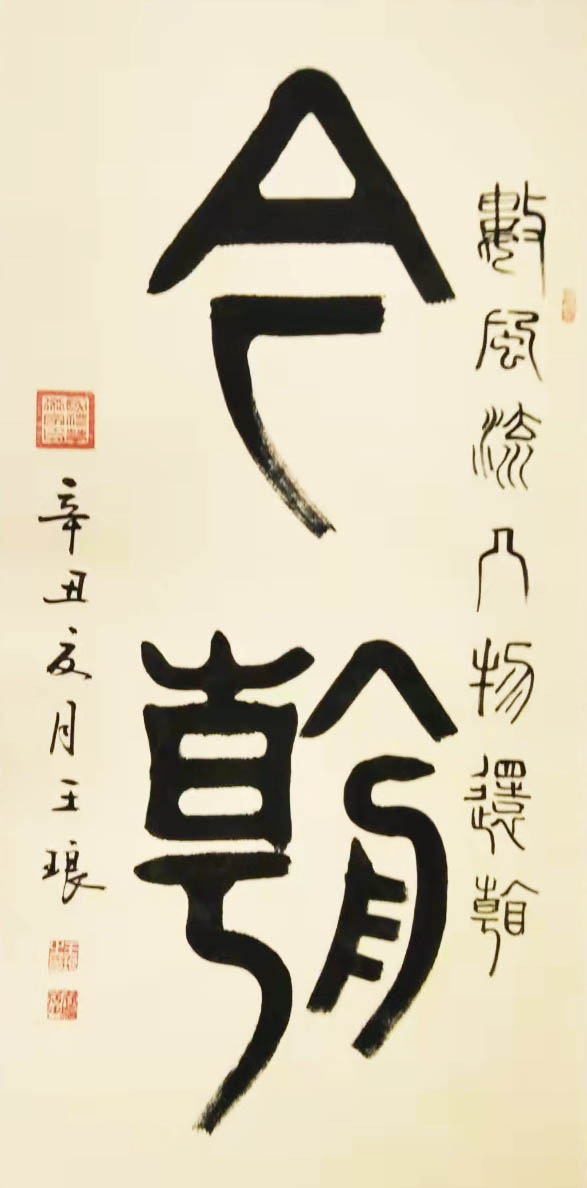 數風流人物還看
今朝
辛丑夏月王琅